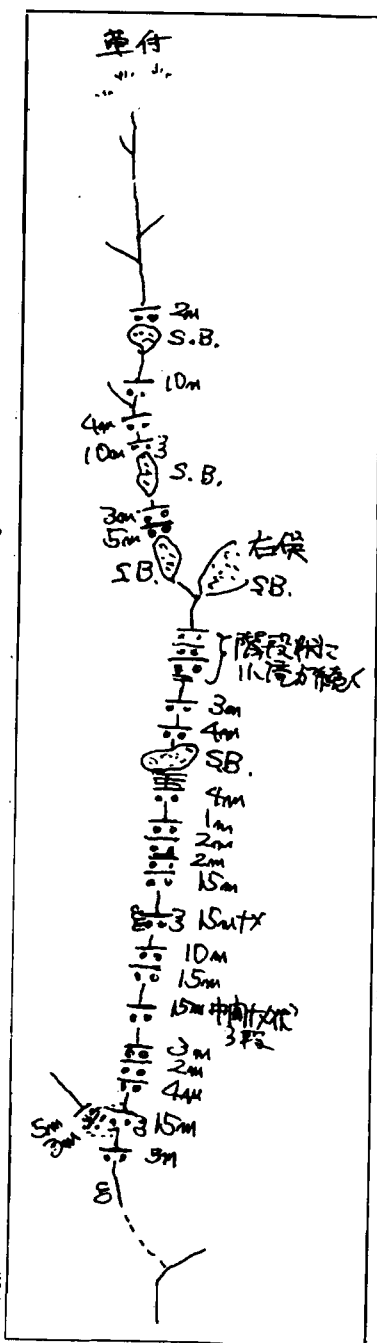 草付
2m
S.B.
10m
4m
10m 3
S.B.
3m
5m
右俣
S.B.
S.B.
階段状に
小滝が続く
3m
4m
S.B.
4m
1m
2m
2m
15m
3 15m
10m
15m
15m 中間
3段
3m
2m
4m
3 15m
5m